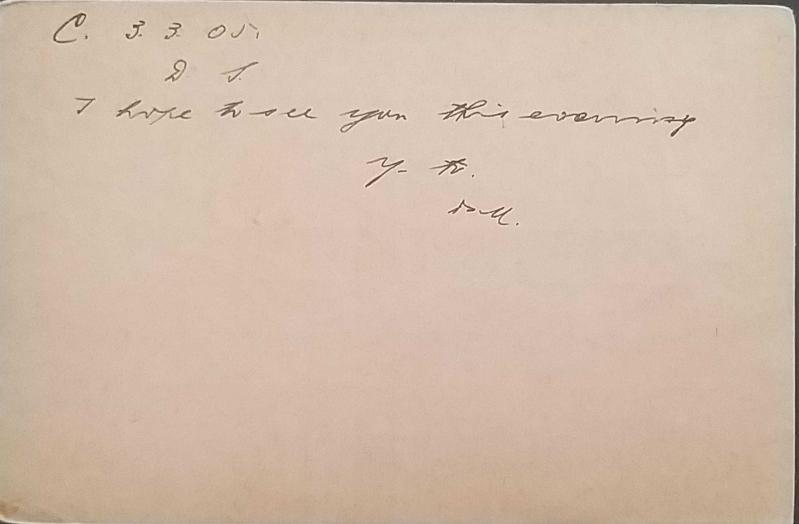 C. 3. 3. 05.
D S.
I hope to see you this evening
Y- tr.